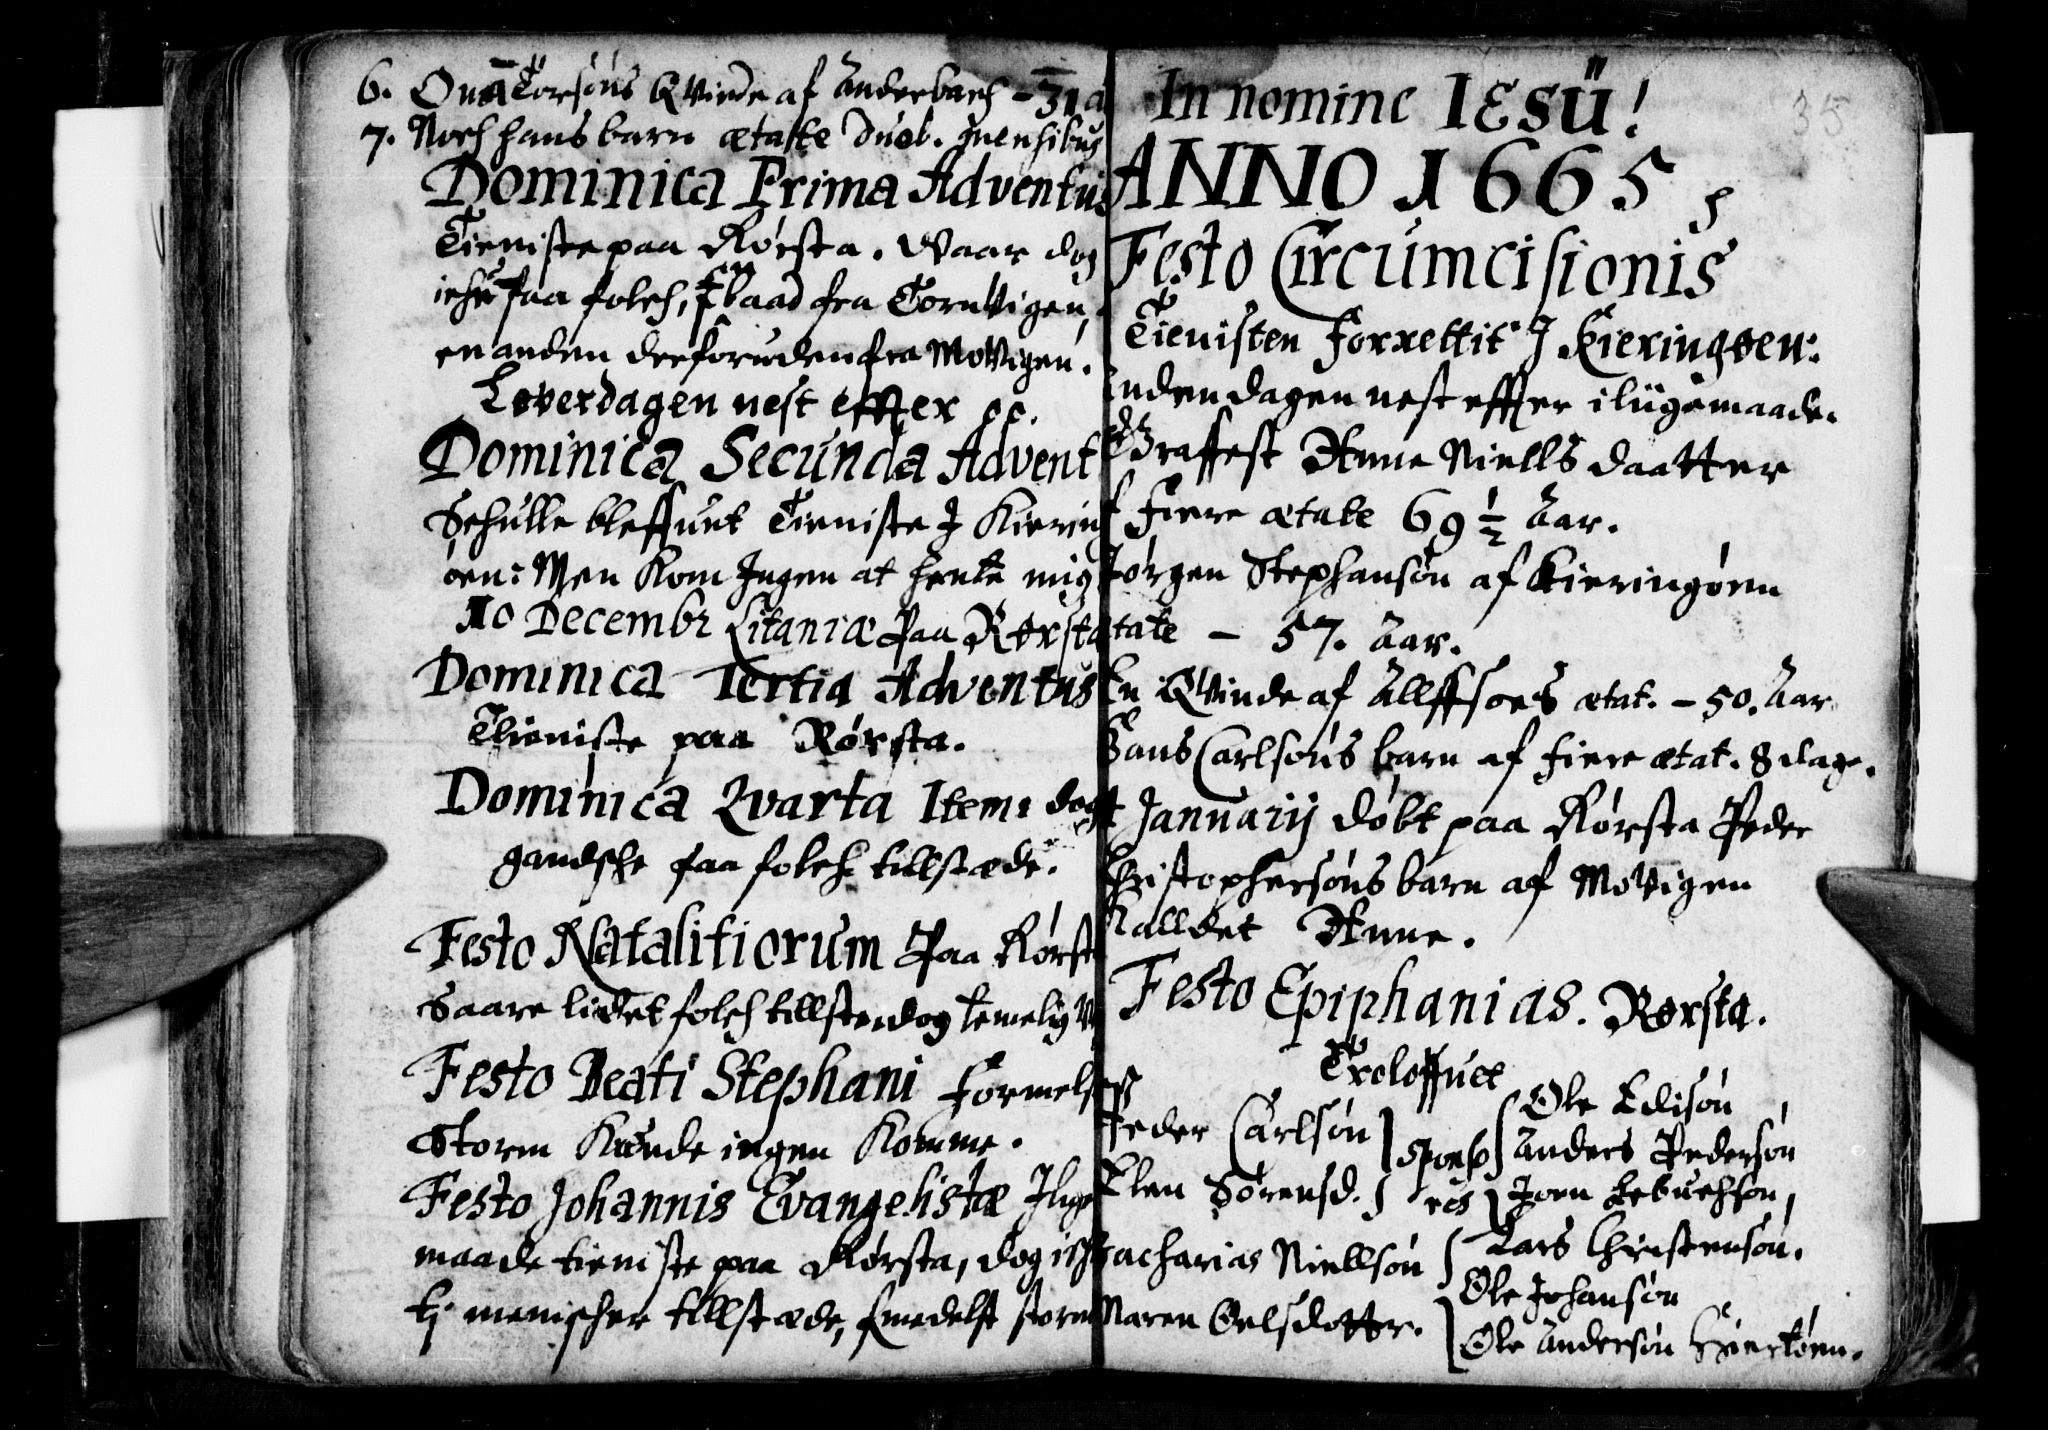 6. Onā Torsøns Qvinde af Anderbach - 31 a
7. Noch hans barn ætatte duob. mensibus
Dominica Prima Adventus
Tieniste paa Rørsta. Waar dog
iche faa folch, baad fra Tornvigen,
en anden derforuden fra Movigen.
Løverdagen nest effter cc.
Dominica Secunda Advent
Schulle bleffuet Tieniste J Kiering
øen: Men Kom Ingen at hente mig
10 Decembr Litaniæ paa Rørsta
Dominica Tertia Adventus
Tieniste paa Rørsta.
Dominica Qvarta Item: dog
gandsche faa folch tillstæde.
Festo Natalitiorum Paa Rørst
Saare lidet folch tillsted dog temelig
Festo Beati Stephani Formelst
Storm Kunde ingen Komme.
Festo Johannis Evangelistæ Ilige
maade tieniste paa Rørsta, dog ich
menischer tillstæde, formedelst storm
35
In nomine IESU!
ANNO 1665
Festo Circumcisionis
Tienisten Forrettit J Kieringøen:
Anden dagen nest effter i lügemaade.
Begraffest Anne Niells daatter
af Fiere ætate 69 1/2 Aar.
Jørgen Stephansøn af Kieringøen
ætate - 57. Aar.
En Qvinde af Allffsoes ætat. - 50. Aar
Hans Carlsøns barn af Fiere ætat. 8 dage.
Januarij døbt paa Rørsta Peder
Christophersøns barn af Movigen
Kalldet Anne.
Festo Epiphanias. Rørsta.
Troloffuet
Peder Carlsøn
Elen Sørensd.
Sponso
res
Ole Edisøn
Anders Pedersøn
Joen
Zacharias Niellsøn
Maren Oelsdotter.
Lars Christensøn.
Ole Johansøn
Ole Andersøn Hiertøen.